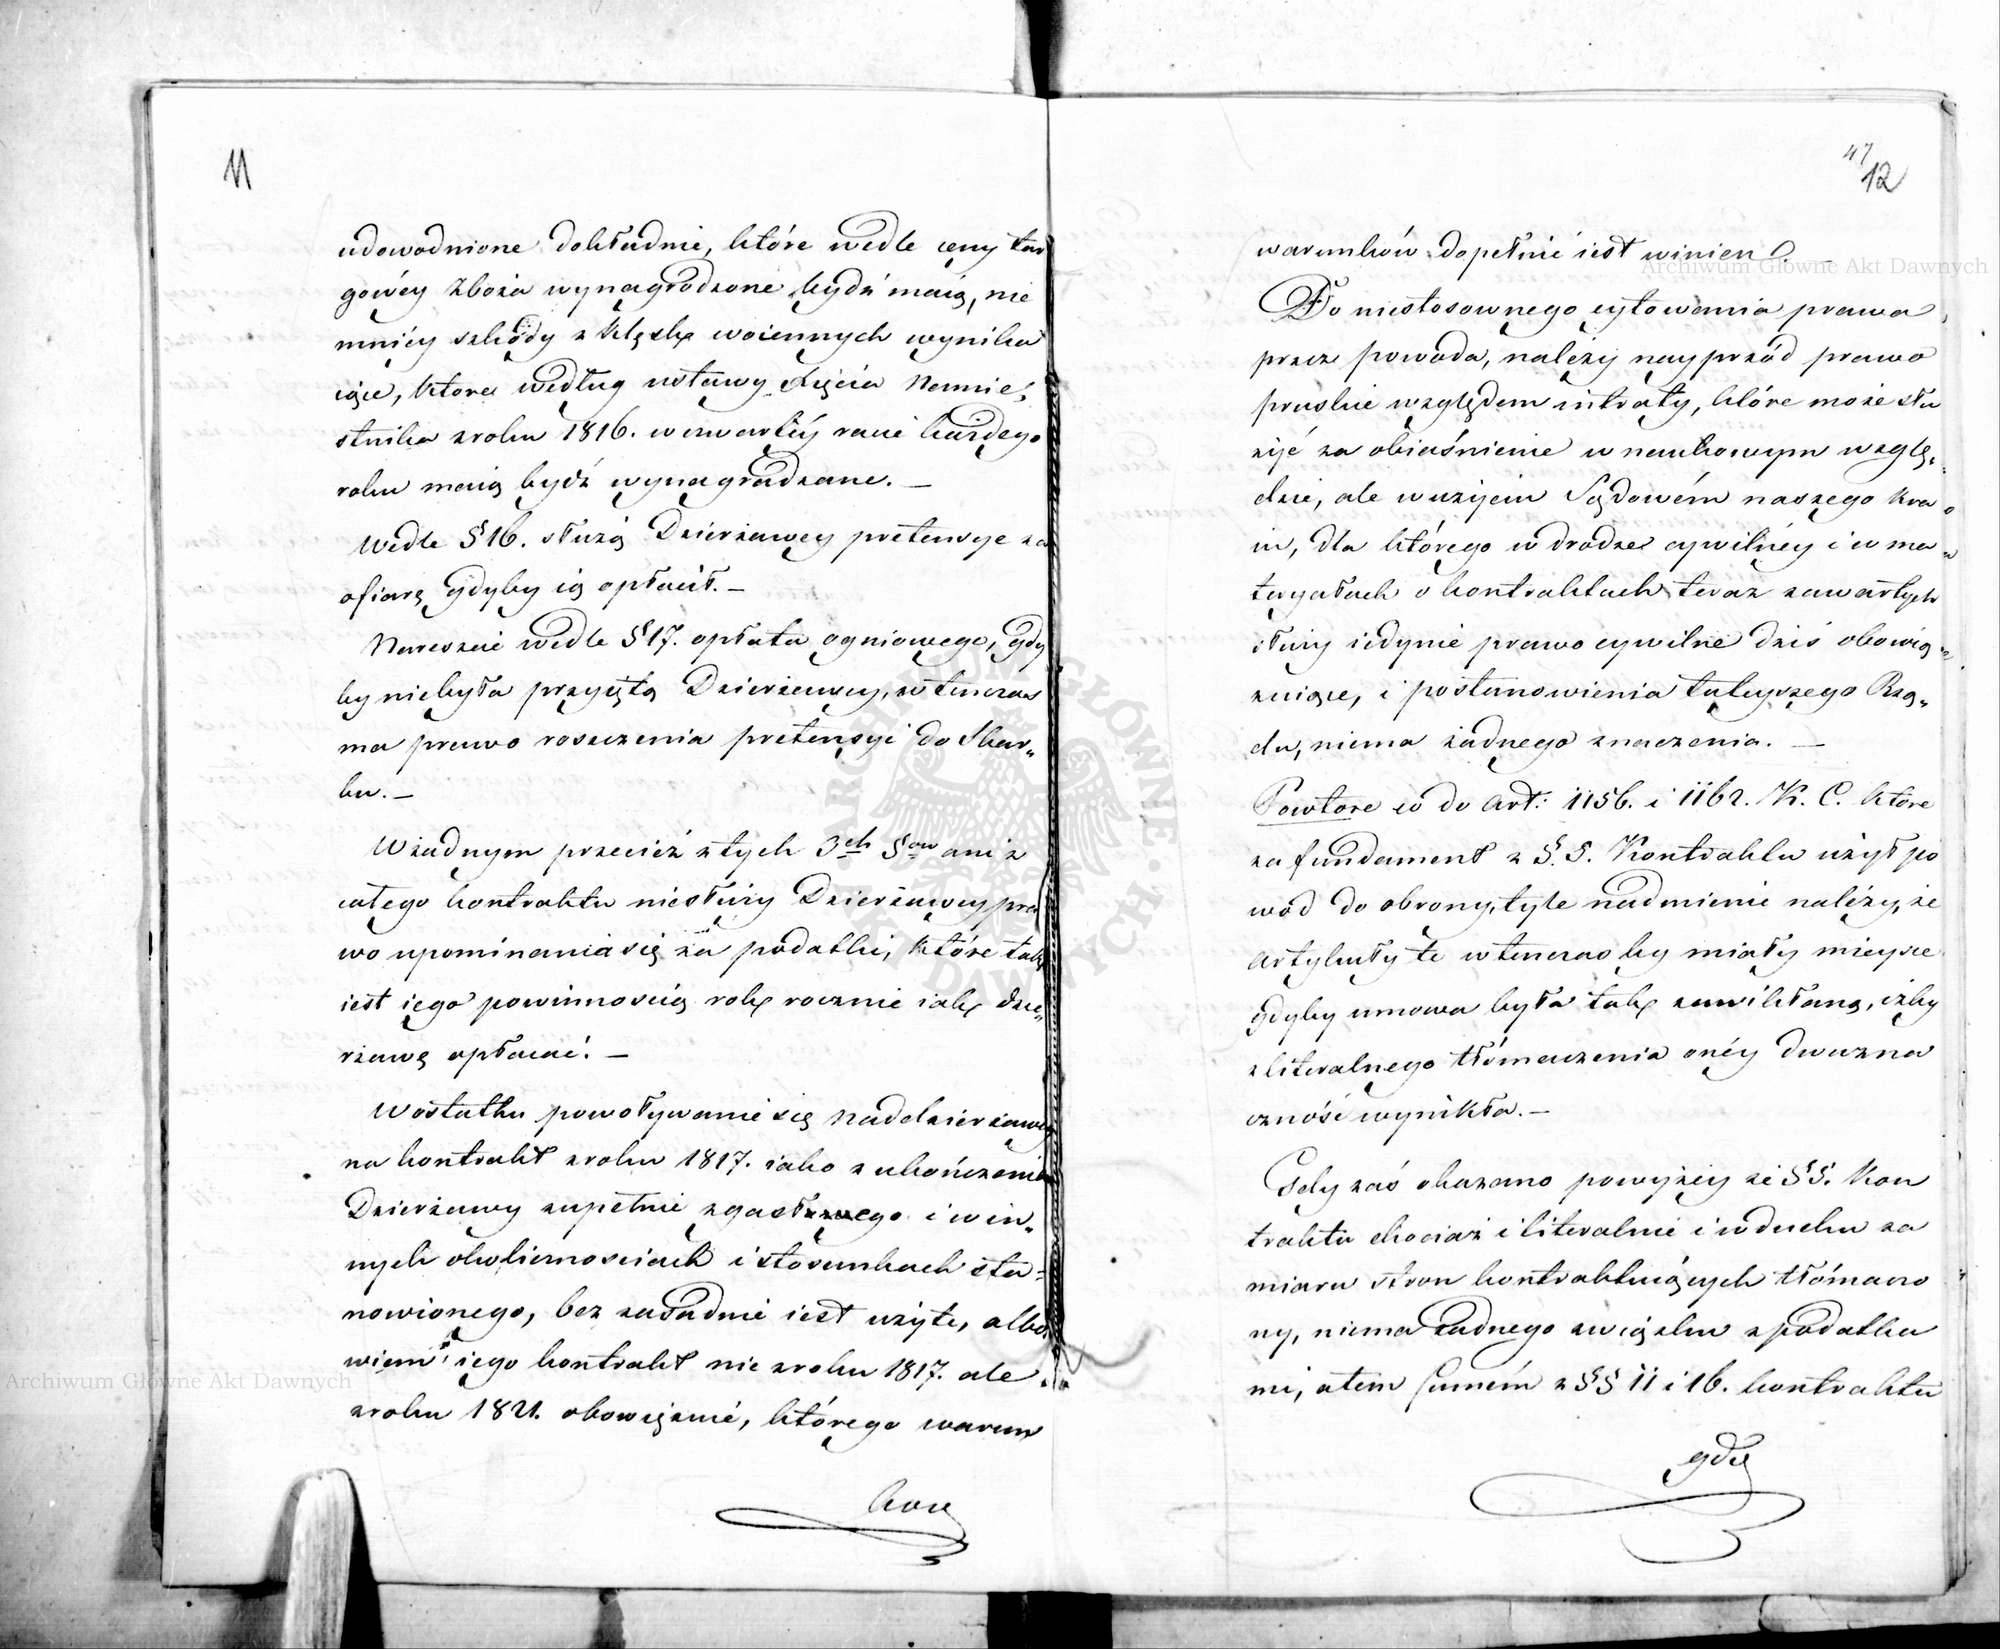 11
udowodnione dokładnie, które wedle ceny tar
gowéy zboża wynagrodzone bydź maią, nie
mniéy szkody z klęsk woiennych wynika
iące, które według ustawy Xięcia Namie,
stnika z roku 1816. w czwartéy racie każdego
roku maią bydź wynagradzane. —
Wedle § 16. służą Dzierżawcy pretensye za
ofiarę gdyby ią opłacił. —
Nareszcie wedle § 17. opłata ogniowego, gdy
by niebyła przyiętą Dzierżawcy, wtenczas
ma prawo roszczenia pretensyi do Skar„
bu. —
W żadnym przecież z tych 3ch §ów ani z
całego kontraktu niesłuży Dzierżawcy pra
wo upominania się za podatki, które tak
iest iego powinnością rok rocznie iak dzie„
rżawę opłacać. —
W ostatku powoływanie się Naddzierżawcy
na kontrakt z roku 1817. iako z ukończenie
Dzierżawy zupełnie zgasłego i w in„
nych okolicznościach i stosunkach sta=
nowionego, bezzasadnie iest użyte, albo
wiem iego kontrakt nie z roku 1817. ale
z roku 1821. obowiązuie, którego warun
ków
47
12
warunków dopełnić iest winien. —
Do niestosownego cytowania prawa
przez powoda, należy nayprzód prawo
pruskie względem intraty, które może słu
żyć za obiaśnienie w naukowym wzglę„
dzie, ale w użyciu Sądowém naszego kra„
iu, dla którego w drodze cywilnéy i w ma„
teryałach o kontraktach teraz zawartych
służy iedynie prawo cywilne dziś obowią„
zuiące, i postanowienia tuteyszego Rzą„
du, niema żadnego znaczenia. —
Powtóre co do art: 1156. i 1162. K. C. które
za fundament z §. 5. Kontraktu użył po
wód do obrony, tyle nadmienić należy, że
artykuły te wtenczas by miały mieysce
gdyby umowa była tak zawikłaną, iżby
z literalnego tłómaczenia onéy dwuzna
czność wynikła. —
Gdy zaś okazano powyżéy że § 5. Kon
traktu chociaż i literalnie i w duchu za
miaru stron kontraktuiących tłómaczo
ny, niema żadnego związku z podatka
mi, a tem samém z §§ 11 i 16. kontraktu
gdzie
Archiwum Główne Akt Dawnych
Archiwum Główne Akt Dawnych
ARCHIWUM GŁÓWNE AKT DAWNYCH